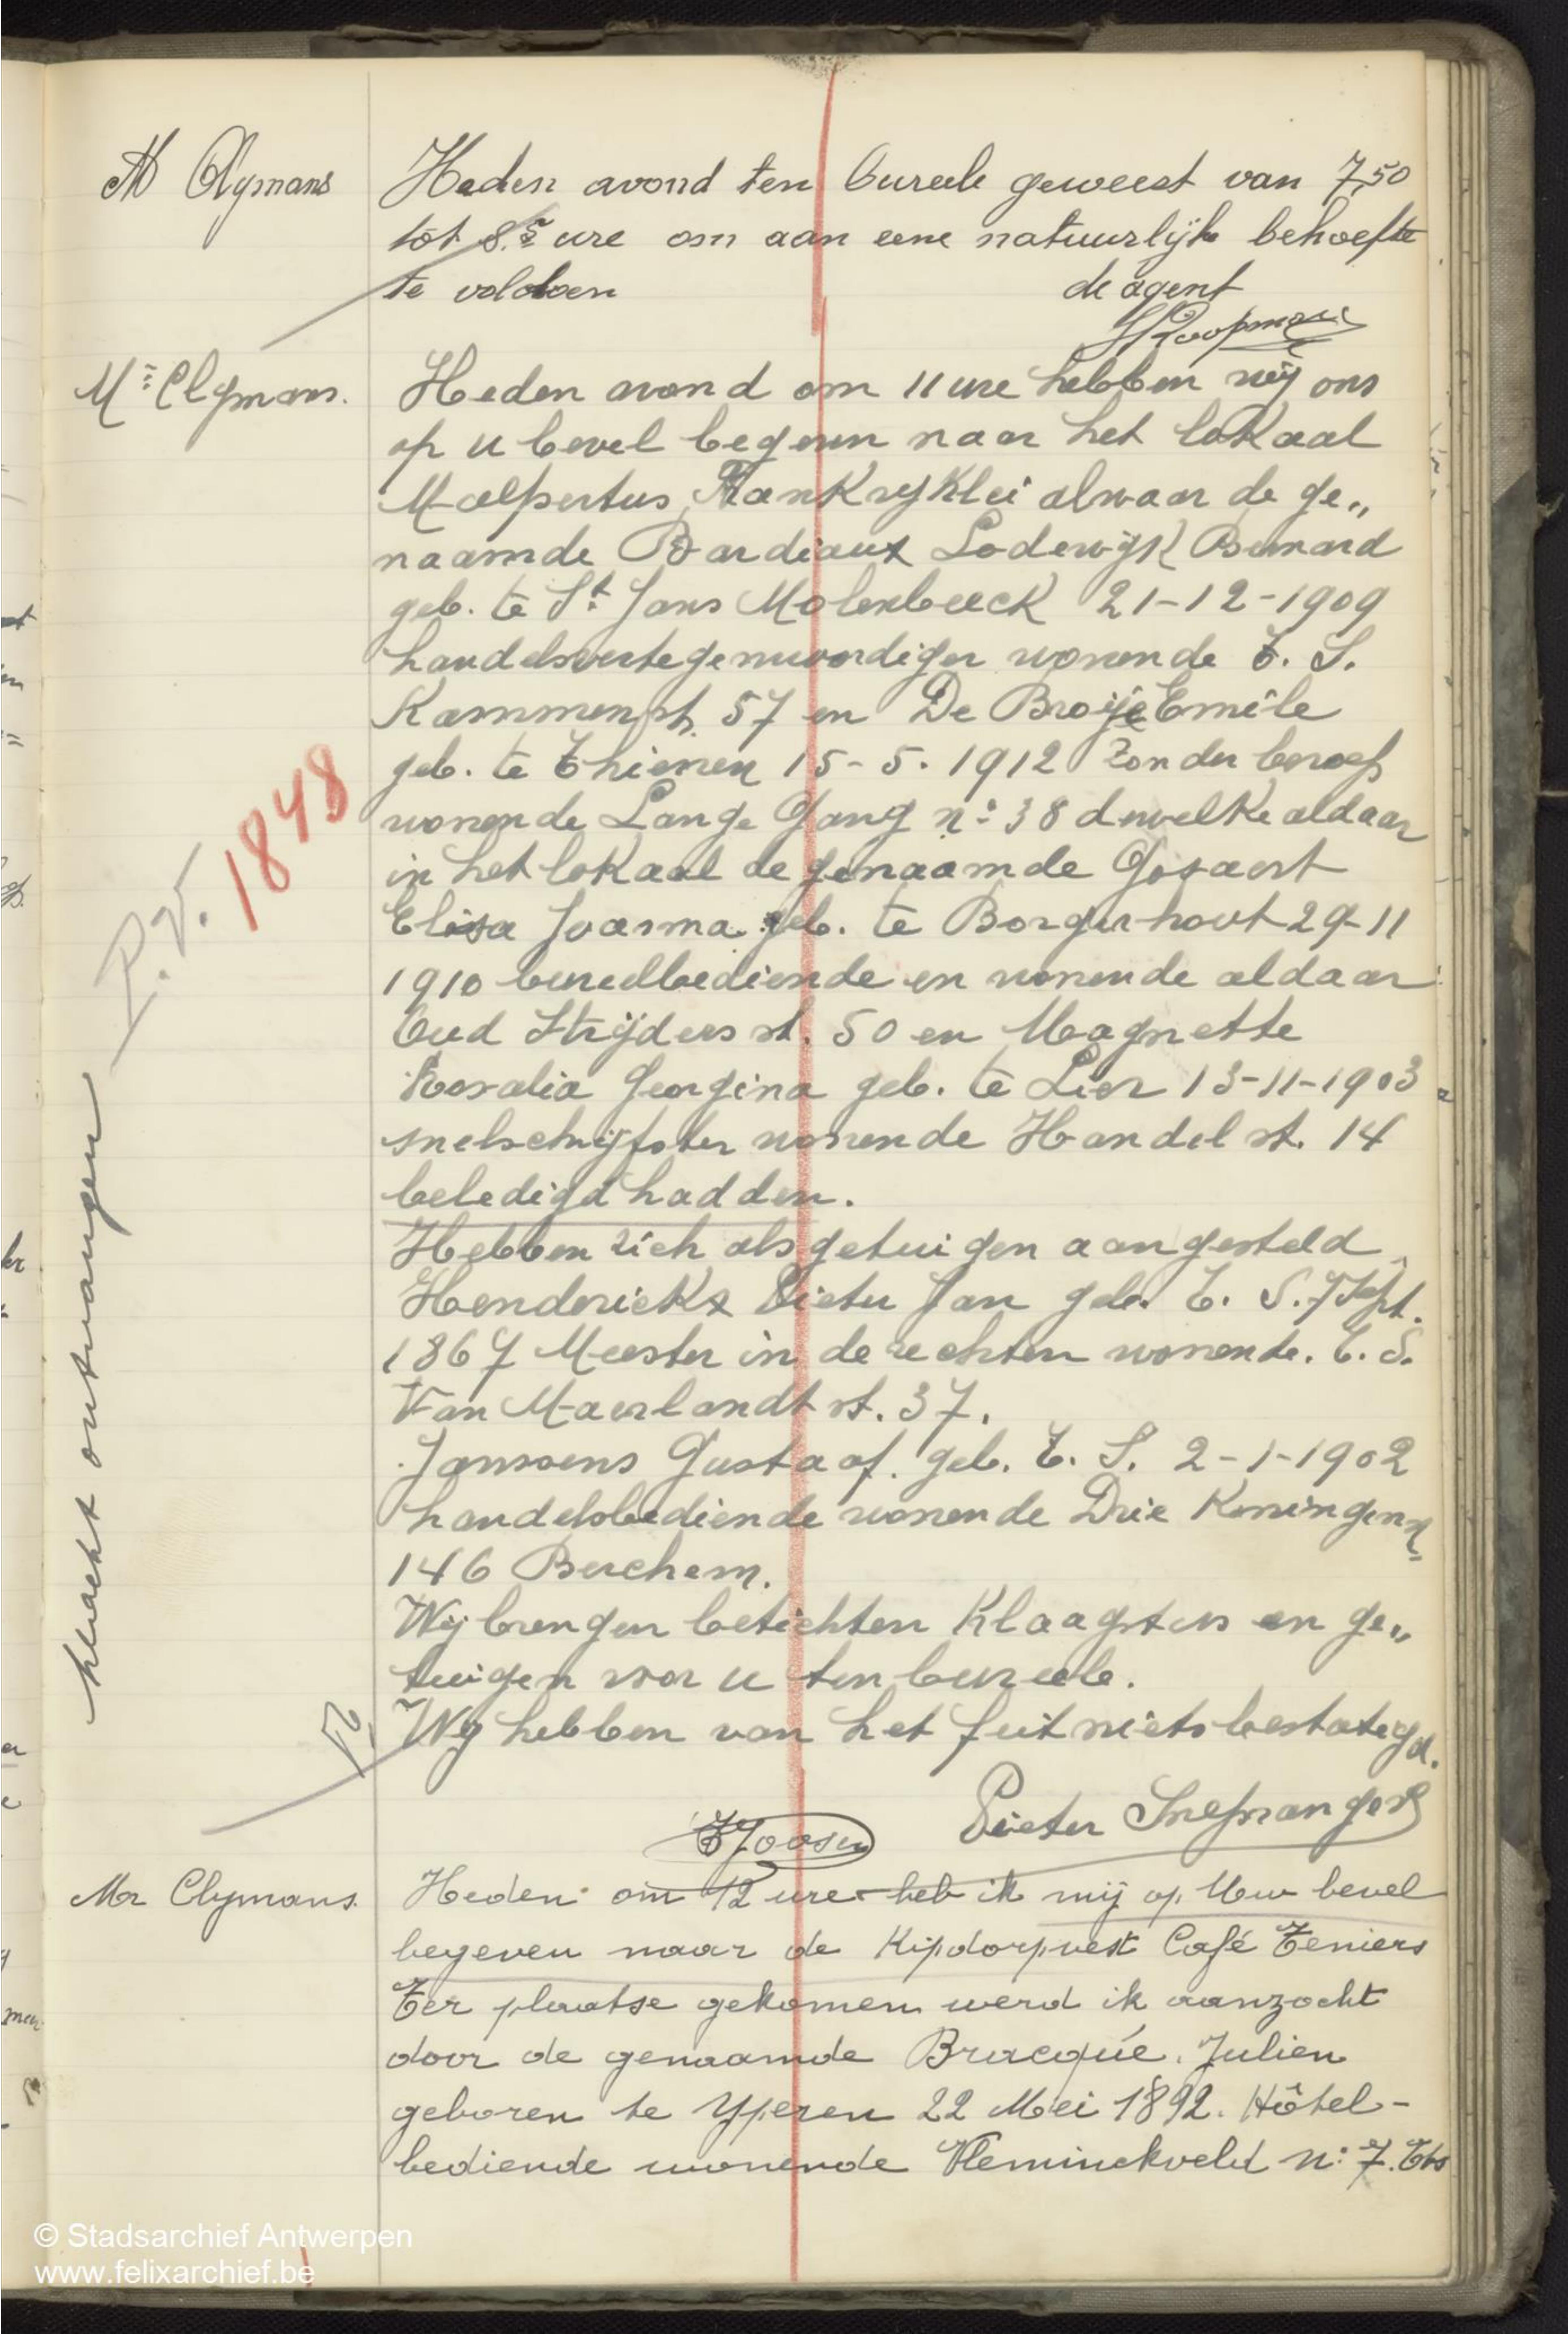 M Clymans
Heden avond ten bureele geweest van 7,50
tot 8.5 ure om aan eene natuurlijke behoefte
te voldoen
de agent
Mr Clymans.
Heden avond om 11 ure hebben wij ons
op u bevel begeven naar het lokaal
Malpertus, Frankrijklei alwaar de ge„
naamde Bardiaux Lodewijk Bernard
geb. te St Jans Molenbeeck 21-12-1909
handelsvertegenwoordiger wonende t. S.
Kammenst. 57 en De Broije Emile
geb. te Thienen 15-5-1912 zonder beroep
wonende Lange Gang n: 38 dewelke aldaar
in het lokaal de genaamde Gosaert
Elisa Joasma geb. te Borgerhout 29-11
1910 bureelbediende en wonende aldaar
Oud Strijders st. 50 en Magnette
Rosalia Georgina geb. te Lier 13-11-1903
snelschrijfster wonende Handel st. 14
beledigd hadden.
P.V. 1848
klacht ontvangen
Hebben zich als getuigen aangesteld
Henderickx Pieter Jan geb. t. S. 7 Sept.
1867 Meester in de rechten wonende. t. S.
Van Maerlandt st. 37.
Janssens Gustaaf. geb. t. S. 2-1-1902
handelsbediende wonende Drie Koningen
146 Berchem.
Wij brengen betichten klaagsters en ge„
tuigen voor u ten bureele.
Wij hebben van het feit niets bestatigd.
Joosen Pieter
Mr Clymans.
Heden om 12 ure heb ik mij op Uw bevel
begeven naar de Kipdorpvest Café Teniers
Ter plaatse gekomen werd ik aanzocht
door de genaamde Bracqué. Julien
geboren te Yperen 22 Mei 1892. Hôtel-
bediende wonende Vleminckveld N: 7.
© Stadsarchief Antwerpen
www.felixarchief.be